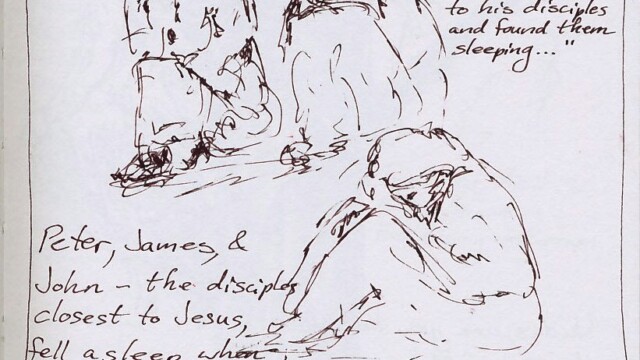 to his disciples
and found them
sleeping..."
Peter, James, &
John - the disciples
closest to Jesus,
fell asleep when